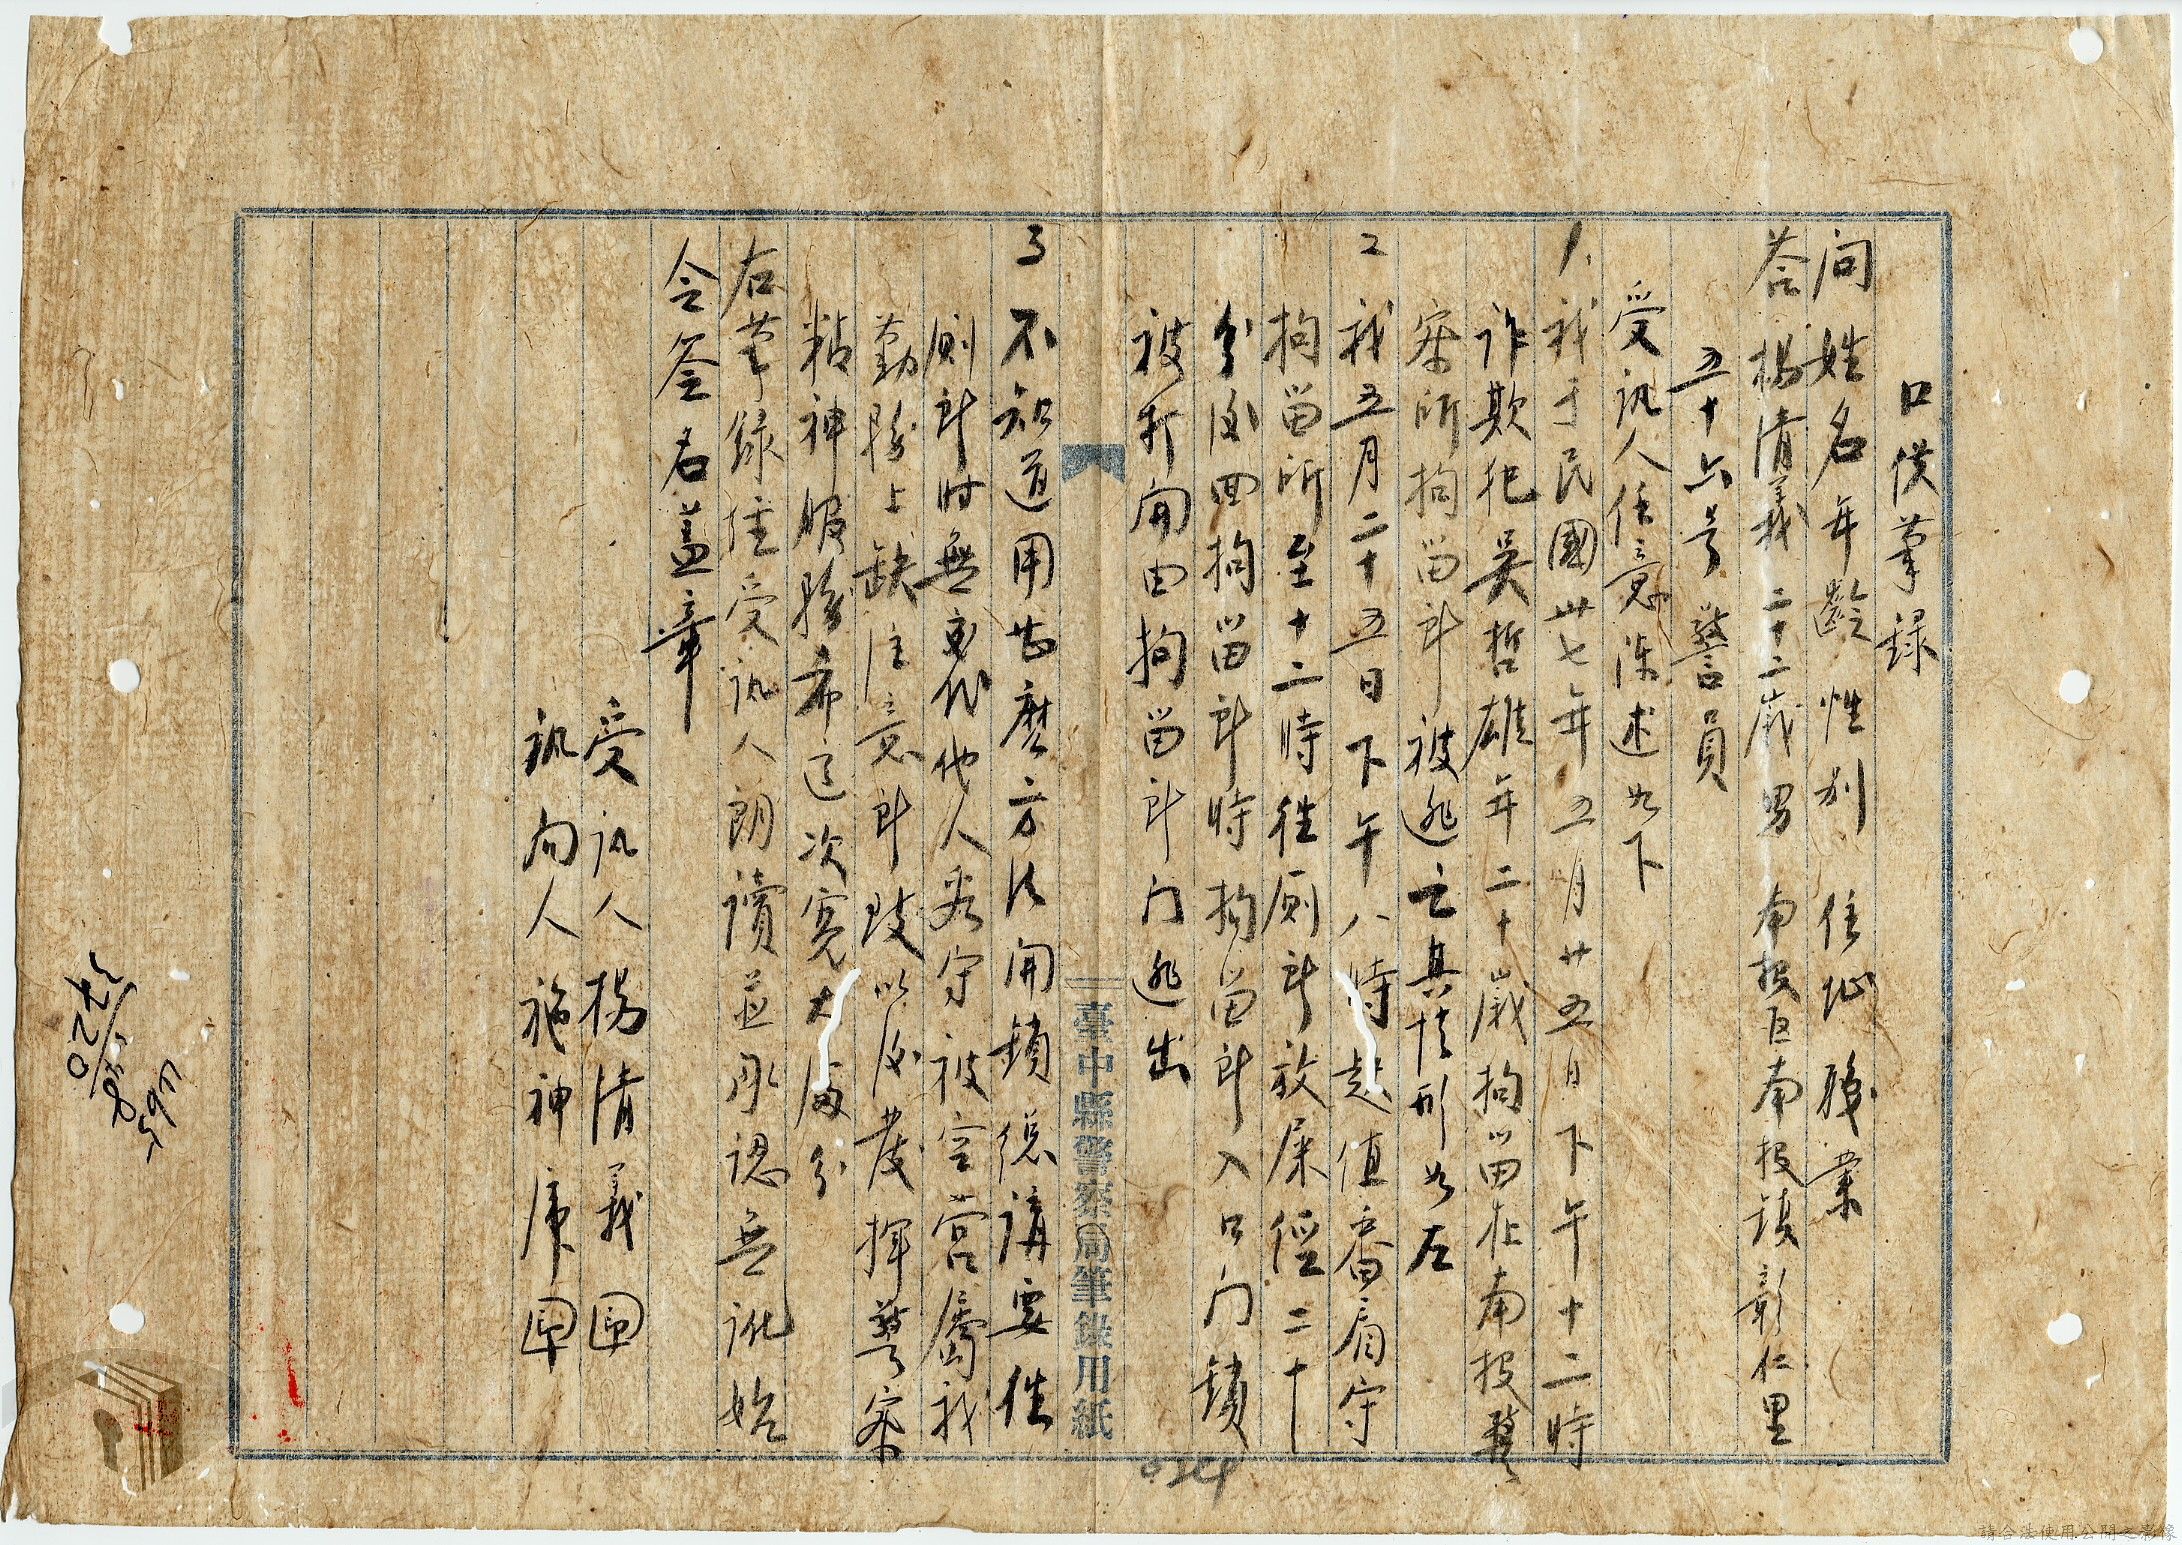 口供筆録
問 姓名年齡性別 住址 職業
答 楊清義 二十二歲 男 南投区南投鎮彰仁里
五十六号 警員
受訊人任意陳述如下
1. 我于民國卅七年五月廿五日下午十二時
詐欺犯吳哲雄年二十歲拘留在南投警
察所拘留所被逃亡其情形如左
2 我五月二十五日下午八時起值番肩守
拘留所至十二時往厠所放屎經二十
分後回拘留所時拘留所入口门鎖
被打開由拘留所门逃出
3 不知道用甚麼方法開鎖總講要往
厠所时無交代他人看守被空営屬我
勤務上缺注意所致以後發揮警察
精神服務希這次寬大處分
右筆録經受訊人朗讀並承認無訛始
令簽名蓋章
受訊人 楊清義 印
訊问人 施神庫 印
臺中縣警察局筆錄用紙
024
593
請合法使用公開之影像